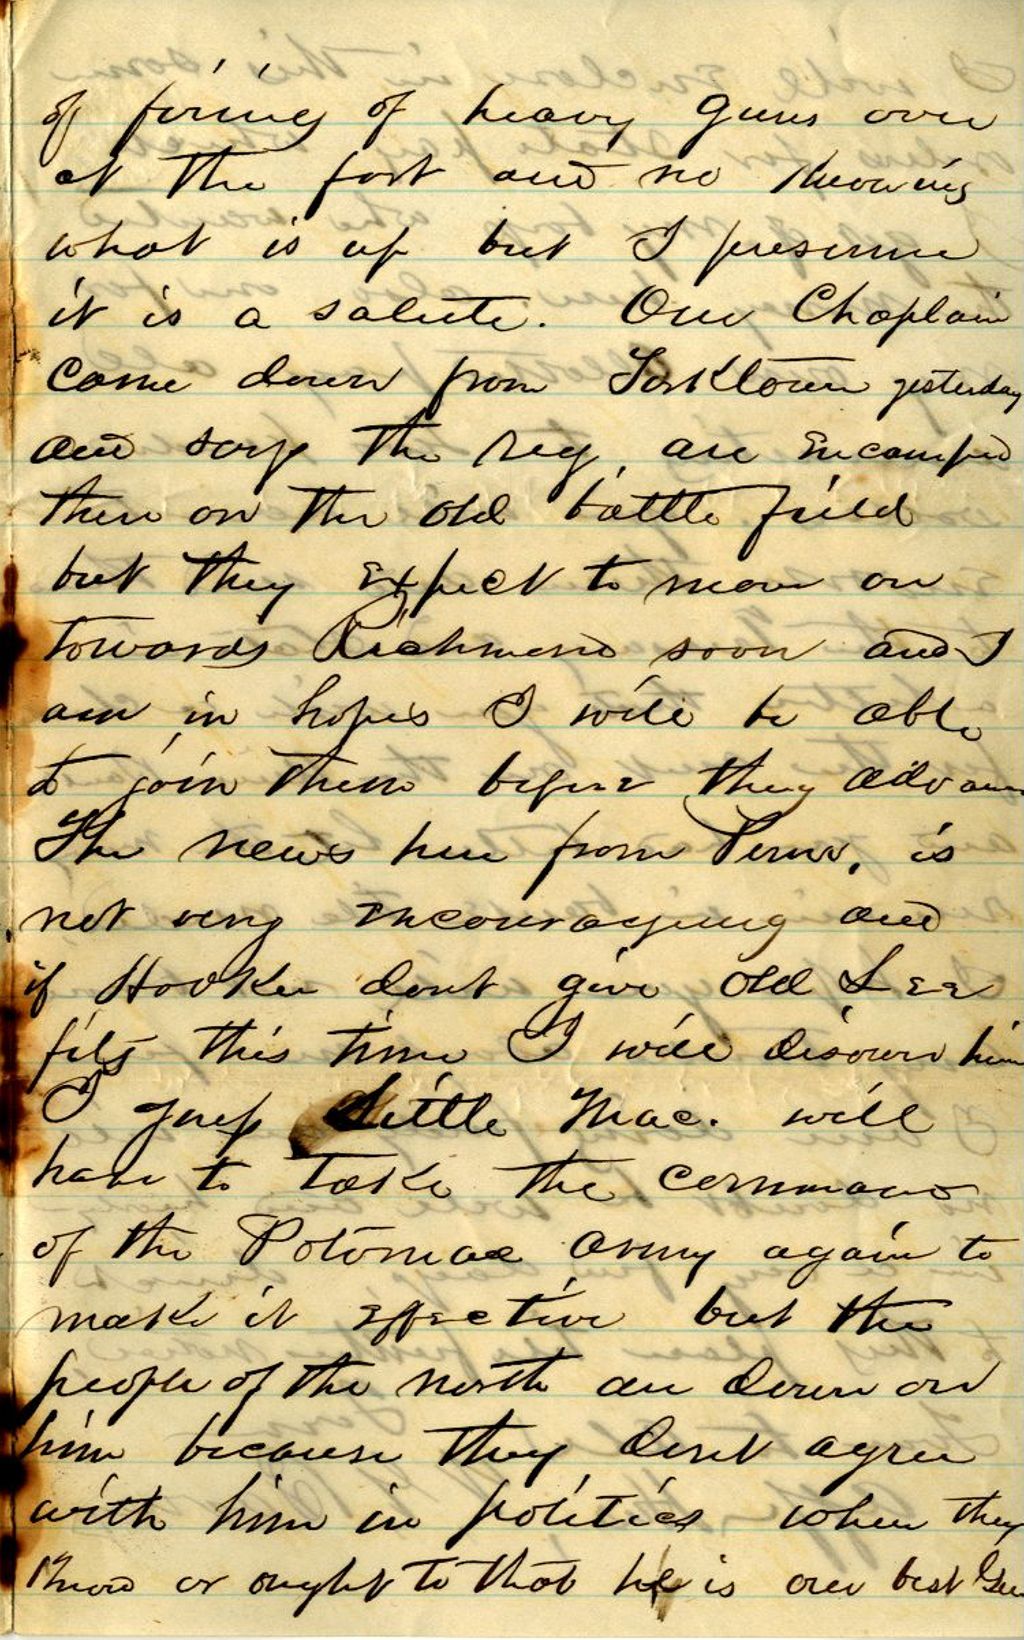 of firing of heavy guns over
at the fort and no knowing
what is up but I presume
it is a salute. Our Chaplain
came down from Yorktown yesterday
and says the reg. are encamped
there on the old battle field
but they expect to move on
towards Richmond soon and I
am in hopes I will be able
to join them before they advance
The news here from Penn. is
not very encouraging and
if Hooker dont give old Lee
fits this time I will disown him
I guess Little Mac. will
have to take the command
of the Potomac Army again to
make it effective but the
people of the north are down on
him because they dont agree
with him in politics when they
know or ought to that he is our best Gen